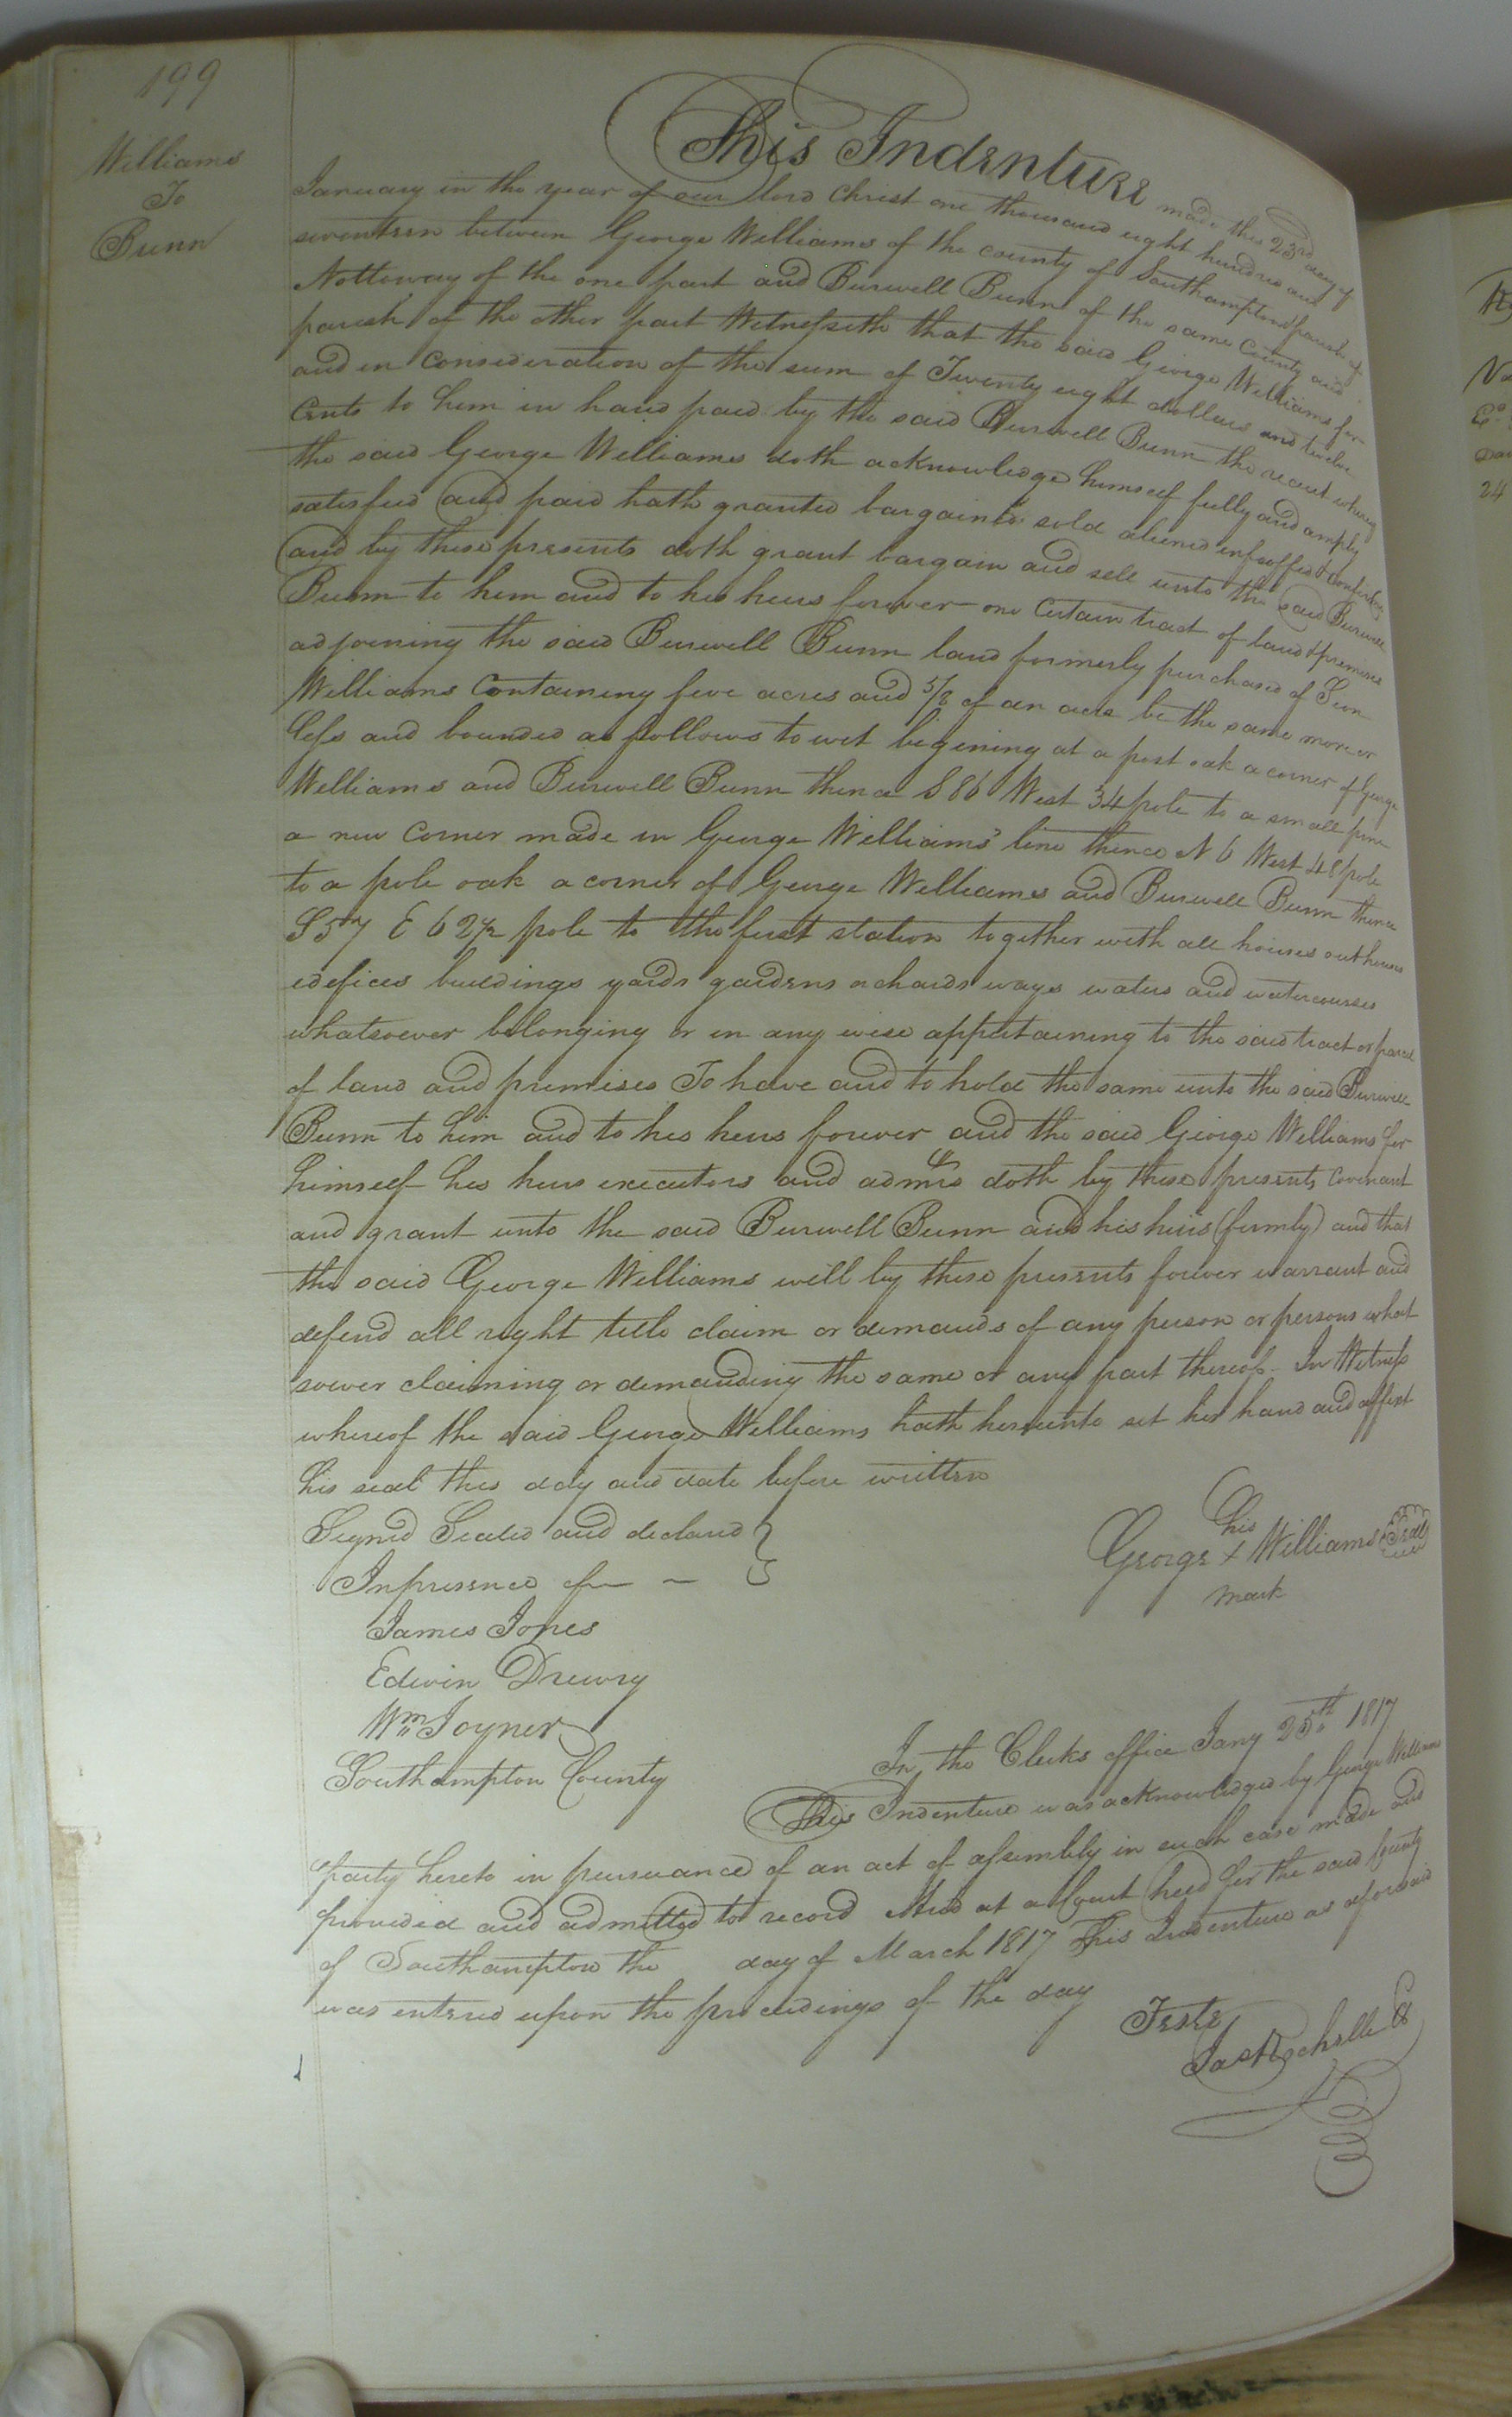 199
Williams
To
Bunn
This Indenture made this 23rd day of
January in the year of our lord Christ one thousand eight hundred and
seventeen between George Williams of the county of Southampton & parish of
Nottoway of the one part and Burwell Bunn of the same county and
parish of the other part Witnesseth that the said George Williams for
and in consideration of the sum of Twenty eight dollars and twelve
Cents to him in hand paid by the said Burwell Bunn the receit whereof
the said George Williams doth acknowledge himself fully and amply
satisfied and paid hath granted bargained sold aliened enfeoffed & confirmed
and by these presents doth grant bargain and sell unto the said Burwell
Bunn to him and to his heirs forever one certain tract of land & premises
adjoining the said Burwell Bunn land formerly purchased of
Williams Containing five acres and 5/8 of an acre be the same more or
less and bounded as follows to wit begining at a post oak a corner of George
Williams and Burwell Bunn thence S 86 West 34 pole to a small pine
a new corner made in George Williams' line thence N 6 West 48 pole
to a pole oak a corner of George Williams and Burwell Bunn thence
S 37 E 62 1/2 pole to the first station together with all houses outhouses
edefices buildings yards gardens orchards ways waters and watercourses
whatsoever belonging or in any wise appertaining to the said tract or parcel
of land and premises To have and to hold the same unto the said Burwell
Bunn to him and to his heirs forever and the said George Williams for
himself his heirs executors and admrs doth by these presents Covenant
and grant unto the said Burwell Bunn and his heirs (firmly) and that
the said George Williams will by these presents forever warrant and
defend all right title claim or demands of any person or persons what
soever claiming or demanding the same or any part thereof - In Witness
whereof the said George Williams hath hereunto set his hand and affixt
his seal this day and date before written
Signed Sealed and declared
In presence of
his
George x Williams Seal
mark
James Jones
Edwin Drewry
Wm Joyner
Southampton County
In the Clerks office Jany 25th 1817
This Indenture was acknowledged by George Williams
party hereto in persuance of an act of assembly in such case made and
provided and admitted to record And at a Court held for the said County
of Southampton the day of March 1817 This Indenture as aforesaid
was entered upon the proceedings of the day
Teste
Jas Rochelle Ct
24